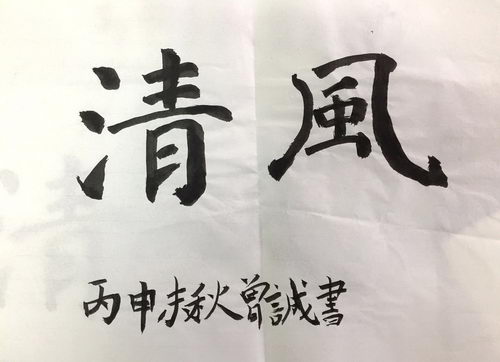 清風
丙申末秋曾誠書